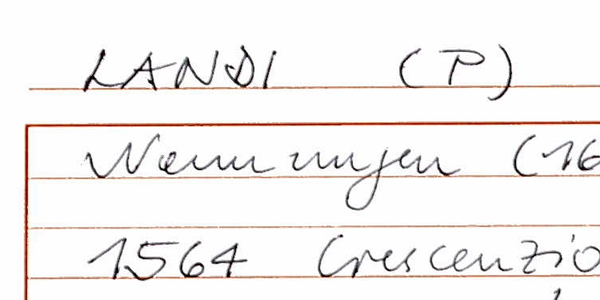 LANDI (P)
Nennungen (16
1564 Crescenzio